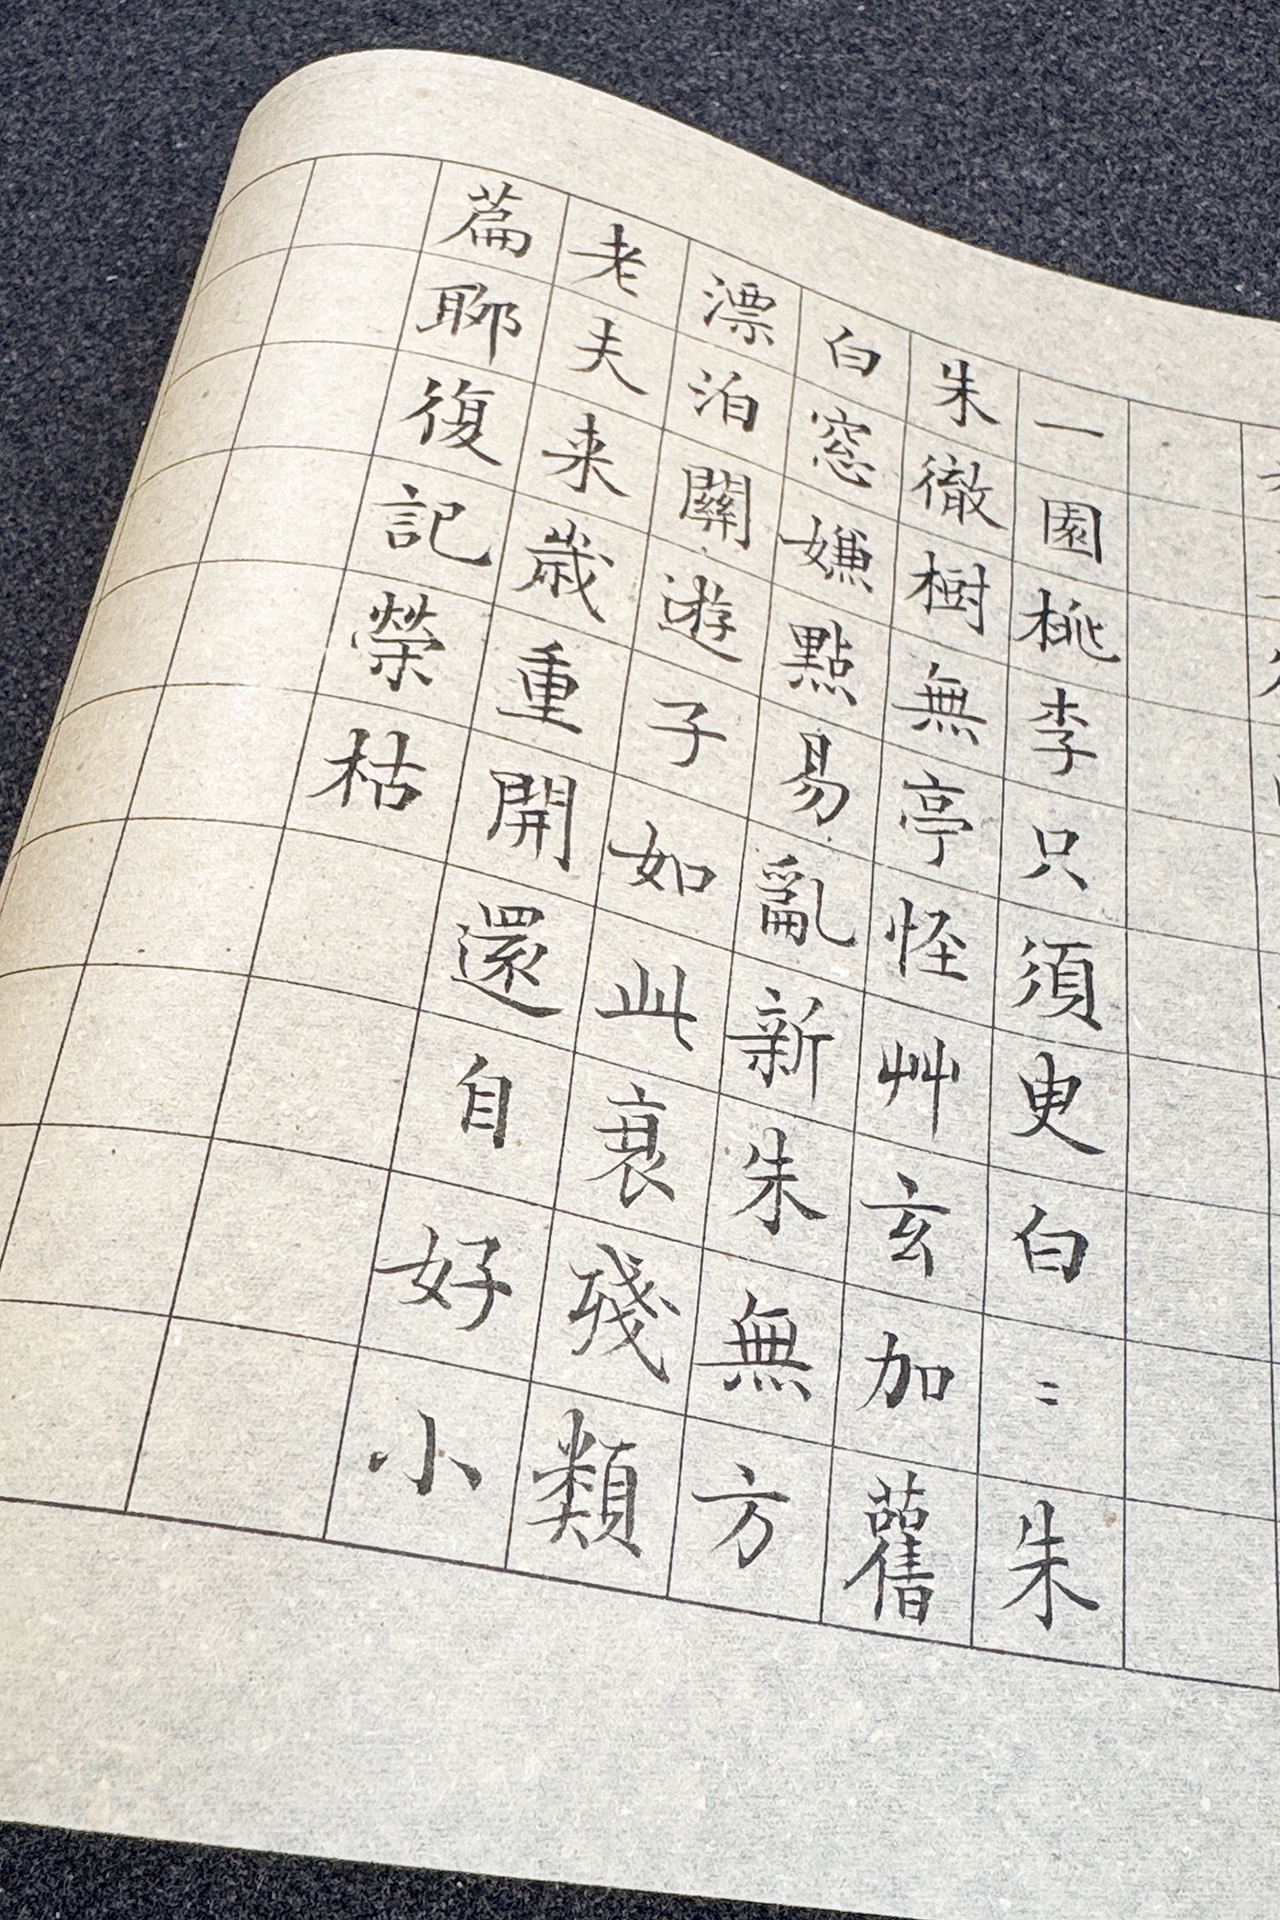 一園桃李只須臾白〻朱
朱徹樹無亭怪艸玄加舊
白窓嫌點易亂新朱無方
漂泊關遊子如此衰殘類
老夫来歲重開還自好小
篇聊復記榮枯